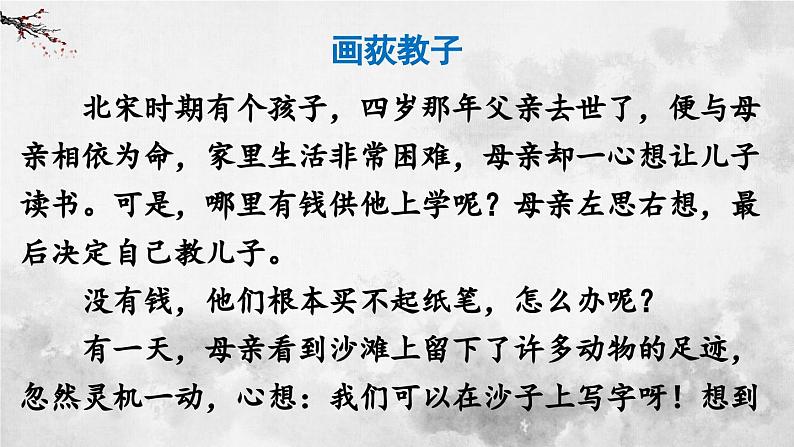 画荻教子
北宋时期有个孩子，四岁那年父亲去世了，便与母
亲相依为命，家里生活非常困难，母亲却一心想让儿子
读书。可是，哪里有钱供他上学呢？母亲左思右想，最
后决定自己教儿子。
没有钱，他们根本买不起纸笔，怎么办呢？
有一天，母亲看到沙滩上留下了许多动物的足迹，
忽然灵机一动，心想：我们可以在沙子上写字呀！想到